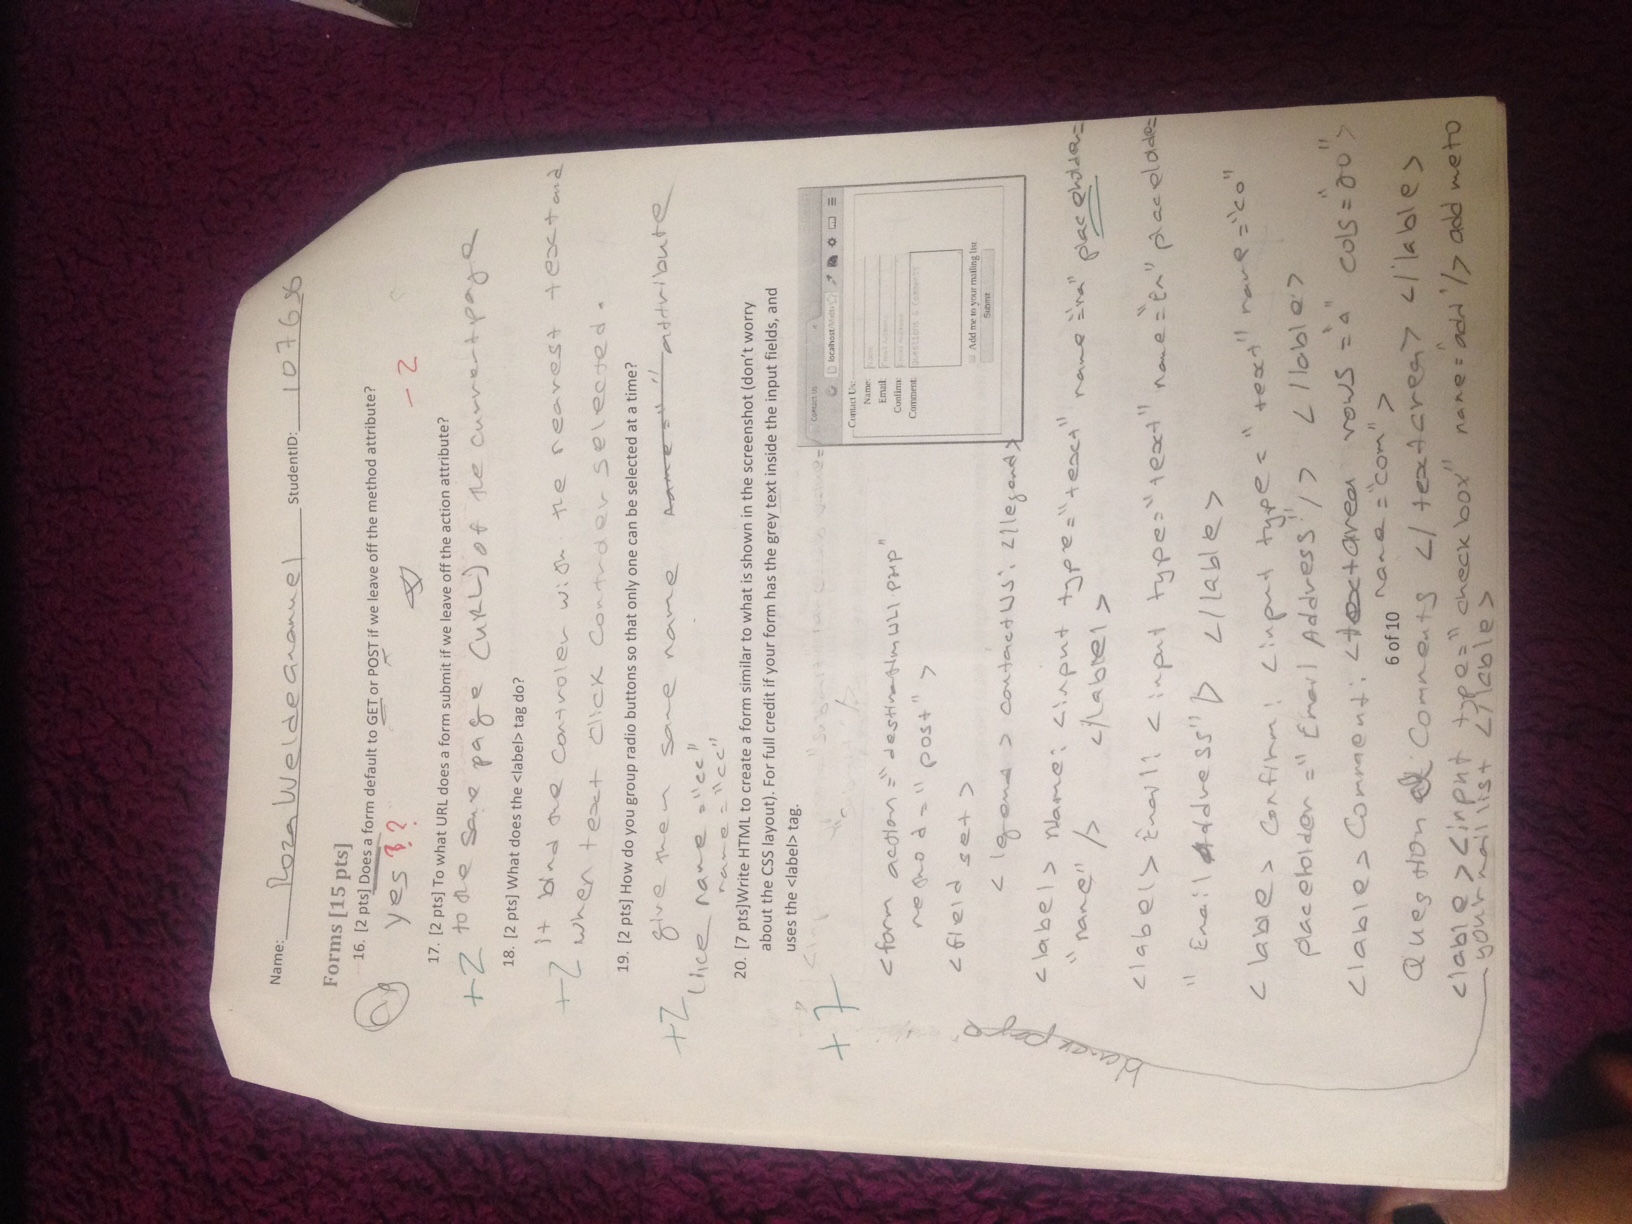 Name: Roza Weldeananuel StudentID: 107636
Forms [15 pts]
16. [2 pts] Does a form default to GET or POST if we leave off the method attribute?
yes ?? -2
17. [2 pts] To what URL does a form submit if we leave off the action attribute?
+2 to the same page (URL) of the current page
18. [2 pts] What does the <label> tag do?
+2 it bind the controler with the nearest text and
when text click controler selected.
19. [2 pts] How do you group radio buttons so that only one can be selected at a time?
+2 give them same name name=" " attribute
like name = "cc"
name = "cc"
20. [7 pts]Write HTML to create a form similar to what is shown in the screenshot (don't worry
about the CSS layout). For full credit if your form has the grey text inside the input fields, and
uses the <label> tag.
+7
Contact us
localhost/
Contact Us:
Name:
Email:
Email Address
Confirm:
Email Address
Comment:
Questions & Comments
Add me to your mailing list
Submit
<form action = "destination URL.PHP"
method = "post" >
<field set >
< legend > contactUs: </legend>
<label> Name: <input type="text" name="na" placeholder=
"name" /> </lable>
<label> Email: < input type="text" name="Em" placeholder=
"Email Address" /> </lable>
< lable> Confirm: <input type = "text" name ="co"
placeholder =" Email Address" /> </lable>
<lable> Comment: <textarea rows ="4" cols ="20">
name ="com" >
6 of 10
Question & Comments </ textarea> </lable>
<lable ><input type=" check box" name="add" /> add me to
your mail list </lable>
blanck page